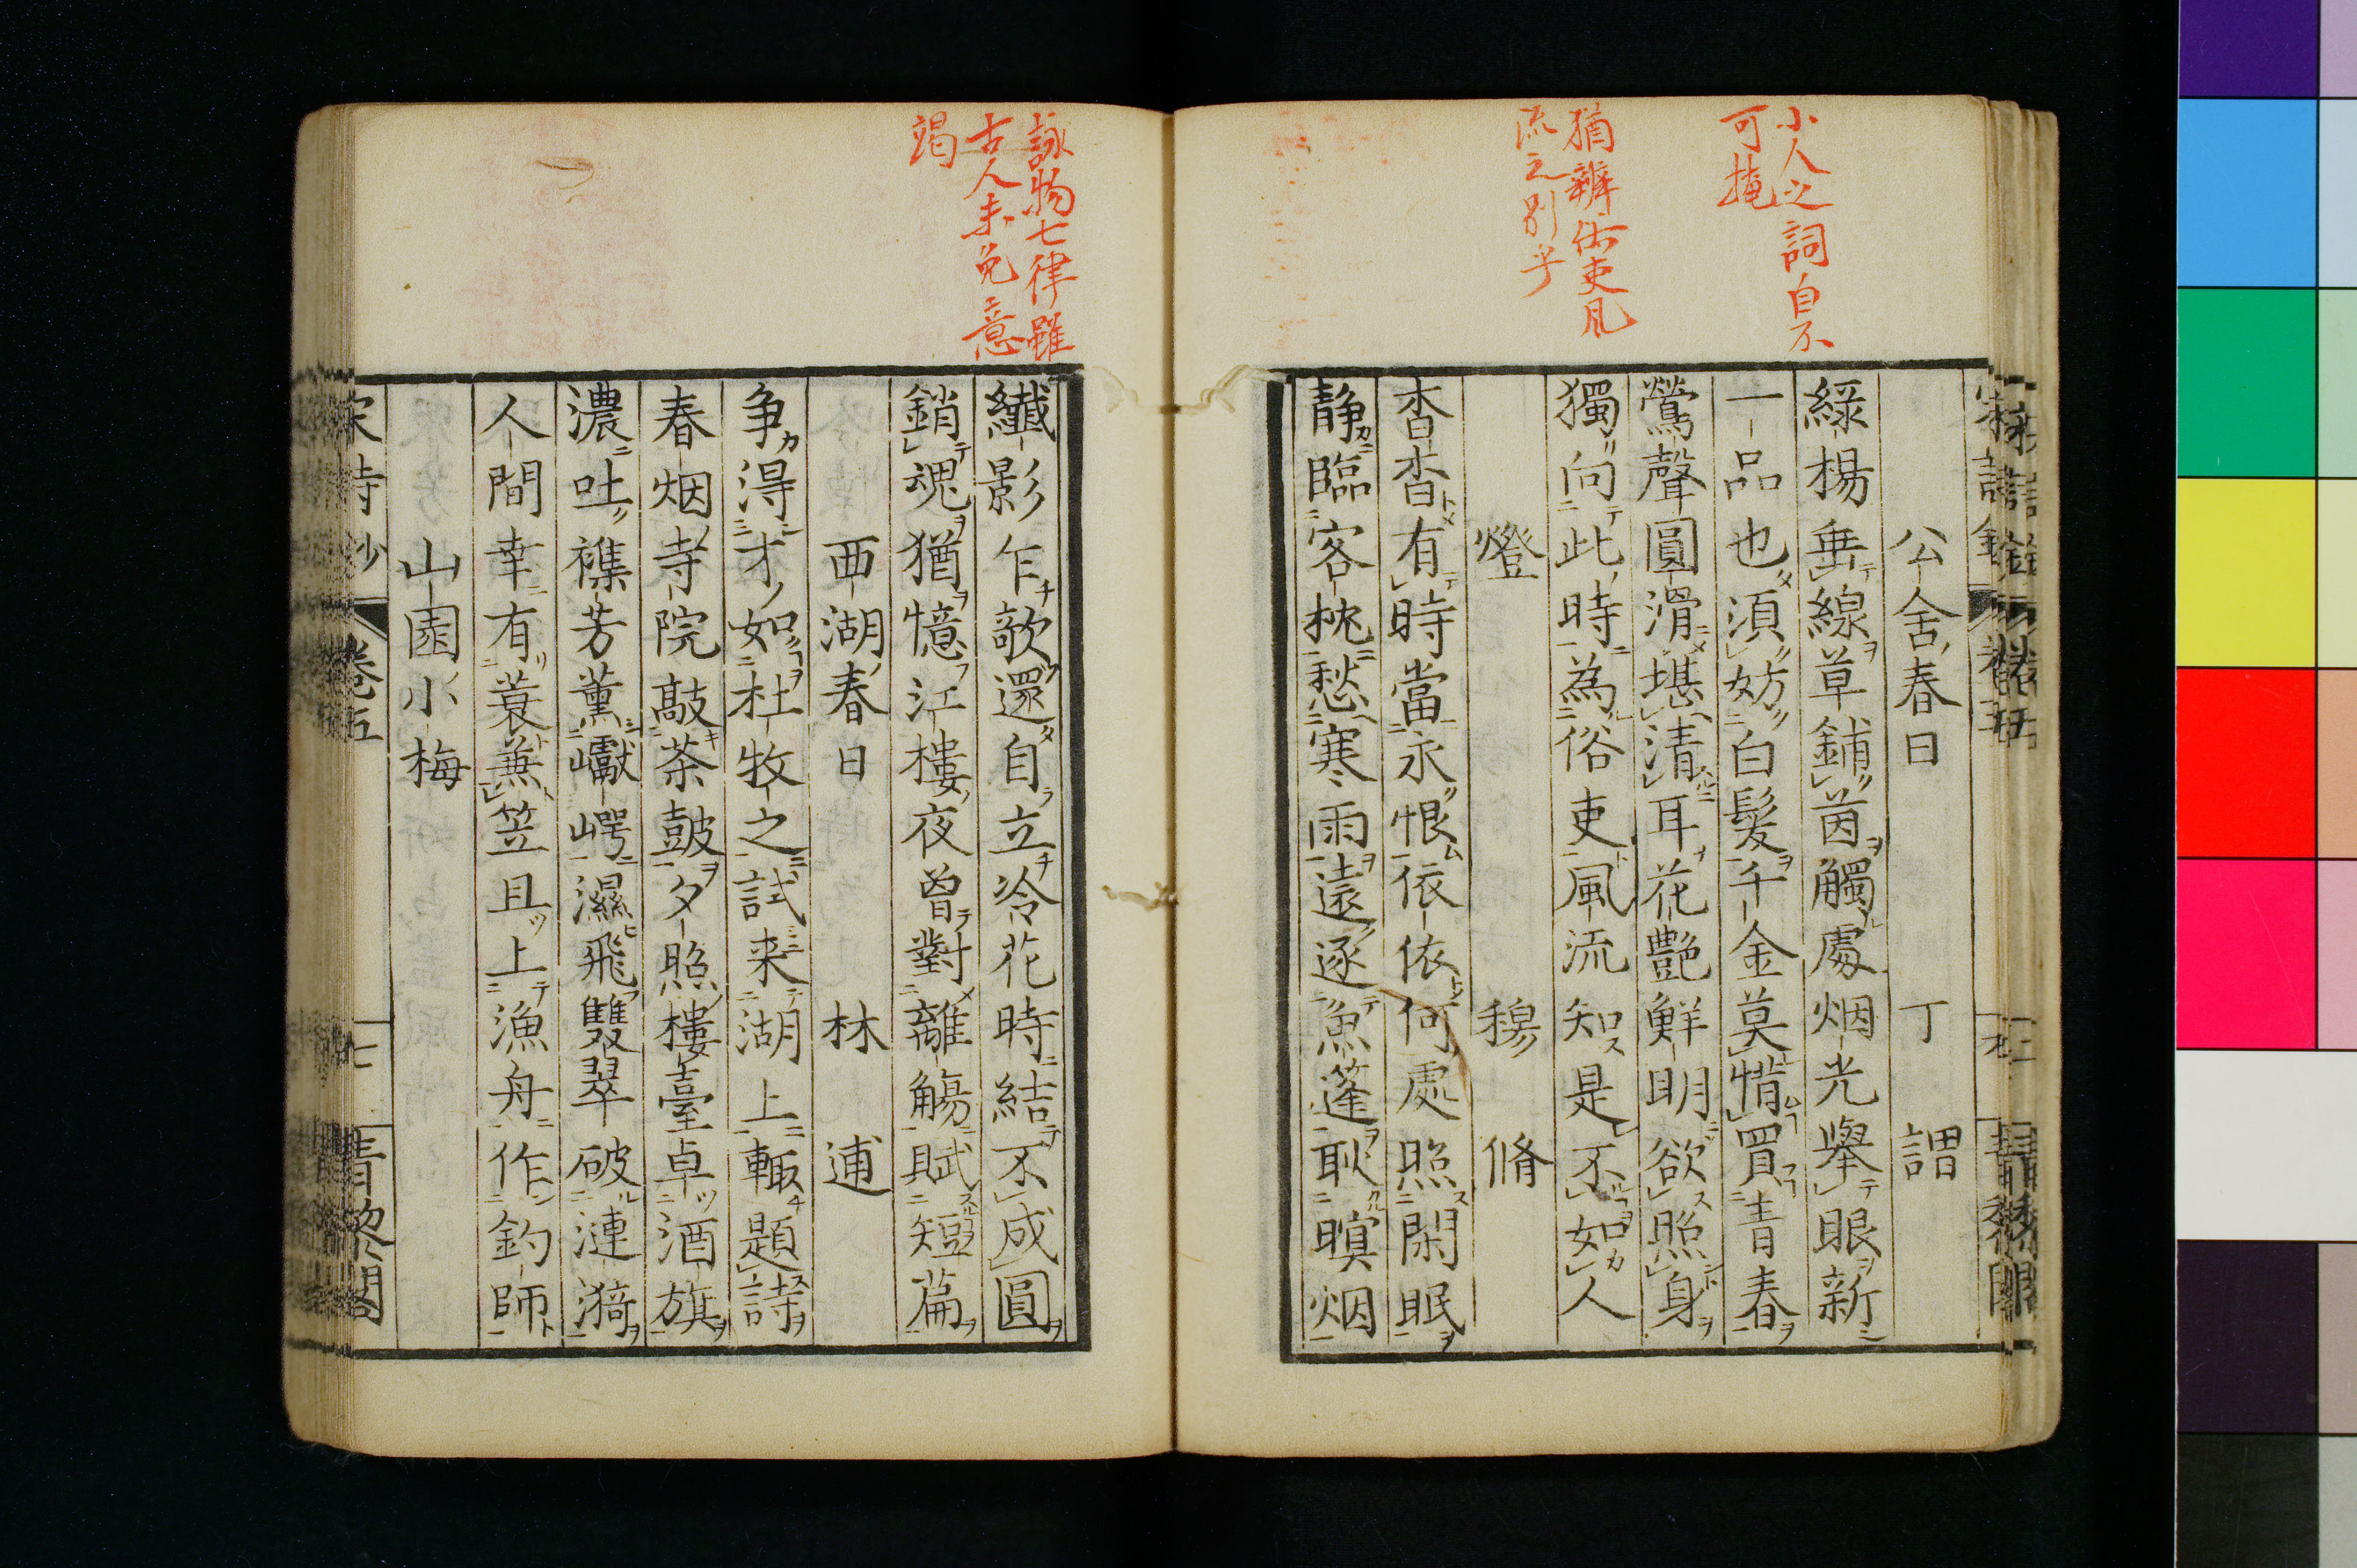 小人之詞自不
可掩
猶辨俗吏風
流之別乎
公舍春日
丁謂
綠楊垂線草鋪茵觸處烟光舉眼新
一品也須妨白髪千金莫惜買青春
鶯聲圓滑堪清耳花艶鮮明欲照身
獨向此時為俗吏風流知是不如人
燈
穆脩
杳杳有時當永恨依依何處照閑眠
静臨客枕愁寒雨遠逐魚篷耿暝烟
詠物七律雖
古人未免意
竭
纖影乍欹還自立冷花時結不成圓
銷魂猶憶江樓夜曾對離觴賦短篇
西湖春日
林逋
争得才如杜牧之試来湖上輙題詩
春烟寺院敲茶鼓夕照樓臺卓酒旗
濃吐襍芳薰巘崿濕飛雙翠破漣漪
人間幸有蓑蒹笠且上漁舟作釣師
山園小梅
宋詩鈔
卷五
七
青黎閣